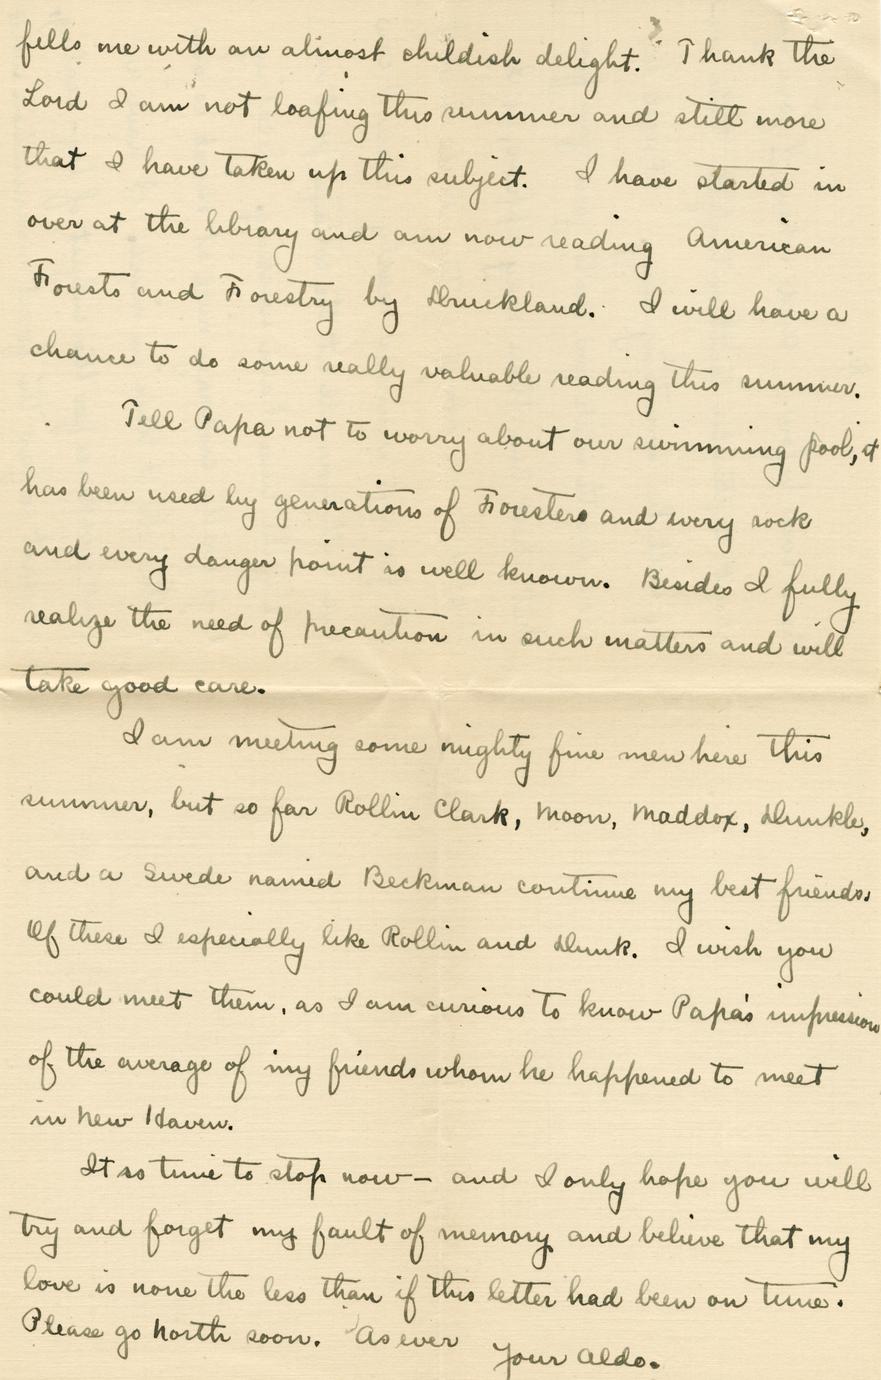 fills me with an almost childish delight. Thank the
Lord I am not loafing this summer and still more
that I have taken up this subject. I have started in
over at the library and am now reading American
Forests and Forestry by Druckland. I will have a
chance to do some really valuable reading this summer.
Tell Papa not to worry about our swimming pool, it
has been used by generations of Foresters and every rock
and every danger point is well known. Besides I fully
realize the need of precaution in such matters and will
take good care.
I am meeting some mighty fine men here this
summer, but so far Rollin Clark, Moon, Maddox, Dunkle,
and a Swede named Beckman continue my best friends.
Of these I especially like Rollin and Dunk. I wish you
could meet them, as I am curious to know Papa's impression
of the average of my friends whom he happened to meet
in New Haven.
It is time to stop now — and I only hope you will
try and forget my fault of memory and believe that my
love is none the less than if this letter had been on time.
Please go North soon. As ever
Your Aldo.